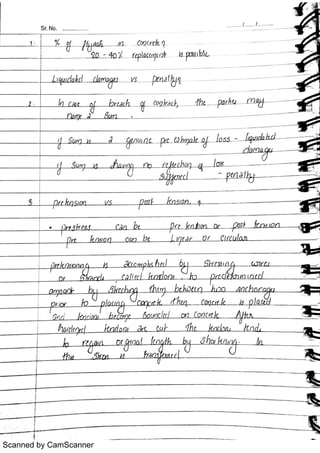 Sr. No.
1. % of flyash in concrete?
20 - 40% replacement is possible.
Liquidated damages vs penalty
2. In case of breach of contract, the parties may
name a sum.
if sum is a genuine pre estimate of loss - liquidated
damages
if sum is having no reflection of loss
suffered - penalty
3 pretension vs post tension.
• prestress can be pre tension or post tension
pre tension can be linear or circular.
pretensioning is accomplished by stressing wires
or strands called tendons to predetermined
amount by stretching them between two anchorages
prior to placing concrete. Then concrete is placed
and tendons become bounded on concrete After
hardened tendons are cut The tendons tends
to regain original length by shortening. In
the is transferred
Scanned by CamScanner